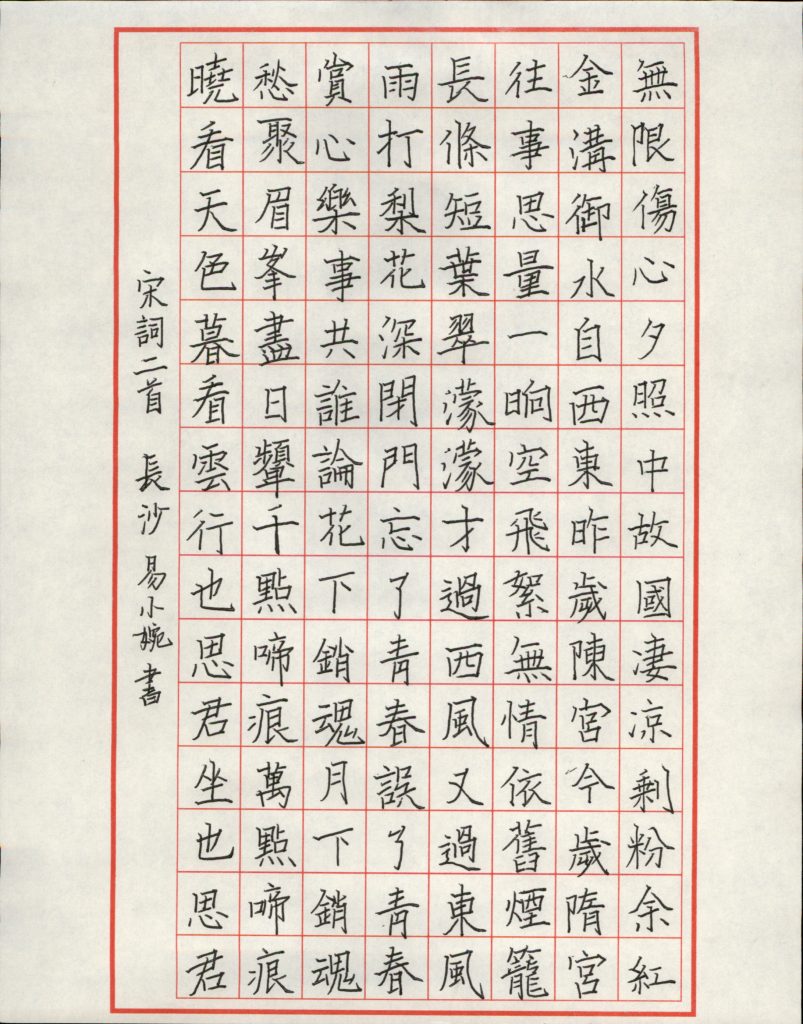 無限傷心夕照中故國淒凉剩粉余紅
金溝御水自西東昨歲陳宮今歲隋宮
往事思量一晌空飛絮無情依舊煙籠
長條短葉翠濛濛才過西風又過東風
雨打梨花深閉門忘了青春誤了青春
賞心樂事共誰論花下銷魂月下銷魂
愁聚眉峯盡日顰千點啼痕萬點啼痕
曉看天色暮看雲行也思君坐也思君
宋詞二首 長沙易小婉書